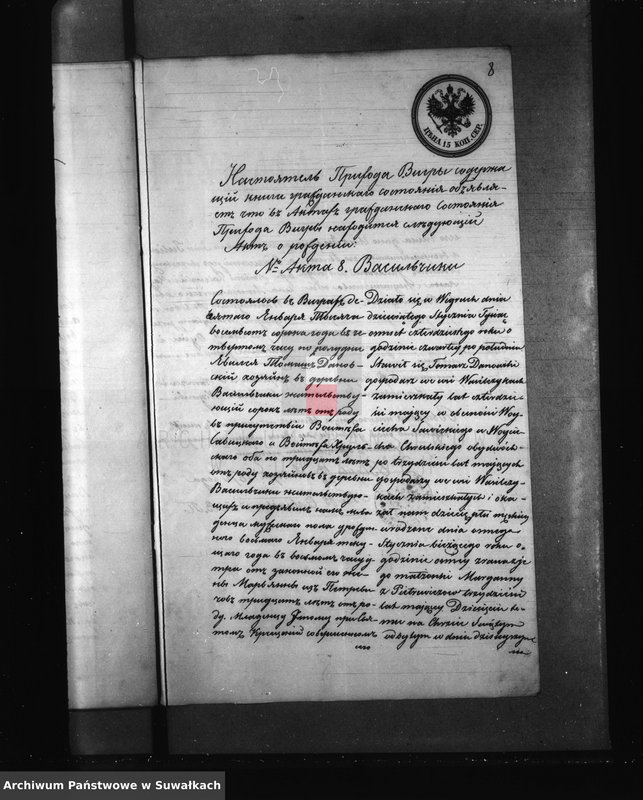 8
ЦѢНА 15 КОП. СЕР.
Настоятель Прихода Вигры содержа
щій книги гражданскаго состоянія объявля-
етъ что въ Актахъ гражданскаго Состоянія
Прихода Вигры находится слѣдующій
Актъ о рожденіи:
№ Акта 8. Васильчики
Состоялось въ Виграхъ де-
вятаго Января Тысяча
восемьсотъ сорока года въ че
твертомъ часу по полудни
Явился Томашъ Данов-
скій хозяинъ въ деревни
Васильчики жительству-
ющій сорокъ лѣтъ отъ роду
въ присутствіи Войтѣха
Савицкаго и Войтѣха Хруль-
скаго оба по тридцать лѣтъ
отъ роду хозяевъ въ деревни
Васильчики жительствую-
щихъ и предъявилъ намъ мла
денца мужескаго пола урожден-
наго восьмаго Января теку-
щаго года въ восьмомъ часу у
тра отъ законной его же-
ны Марьянны изъ Петреви
чевъ тридцать лѣтъ отъ ро-
ду. Младенцу этому при Свя-
томъ Крещеніи совершенномъ
Działo się w Wigrach dnia
dziewiątego Stycznia Tysiąc
ośmset czterdziestego roku o
godzinie czwartej po południu
Stawił się Tomasz Danowski
gospodarz we wsi Wasilczykach
zamieszkały lat czterdzie-
ści mający w obecności Woy-
ciecha Sawickiego i Woycie-
cha Chrulskiego obydwóch
po trzydzieści lat mających
gospodarzy we wsi Wasilczy-
kach zamieszkałych i oka-
zał nam dziecię płci męskiey
urodzone dnia ósmego
Stycznia bieżącego roku o
godzinie ósmey z rana z je-
go małżonki Maryanny
z Pietrewiczów trzydzieści
lat mającey Dziecięciu te-
mu na Chrzcie Świętym
odbytym w dniu dzisieyszym